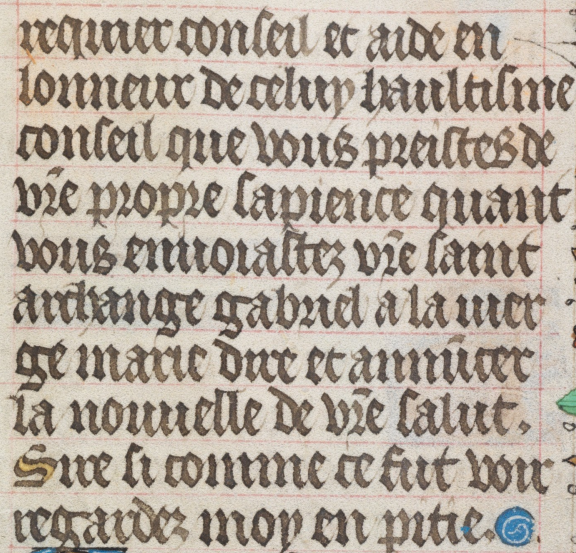 requier conseil et aide en
lonneur de celuy haultisme
conseil que vous preistes de
vr̄e propre sapience quant
vous enuoiastez vr̄e saint
archange gabriel a la uier
ge marie dire et annūcer
la nouuelle de vr̄e salut.
Sire si comme ce fut voir
regardez moy en pitie.